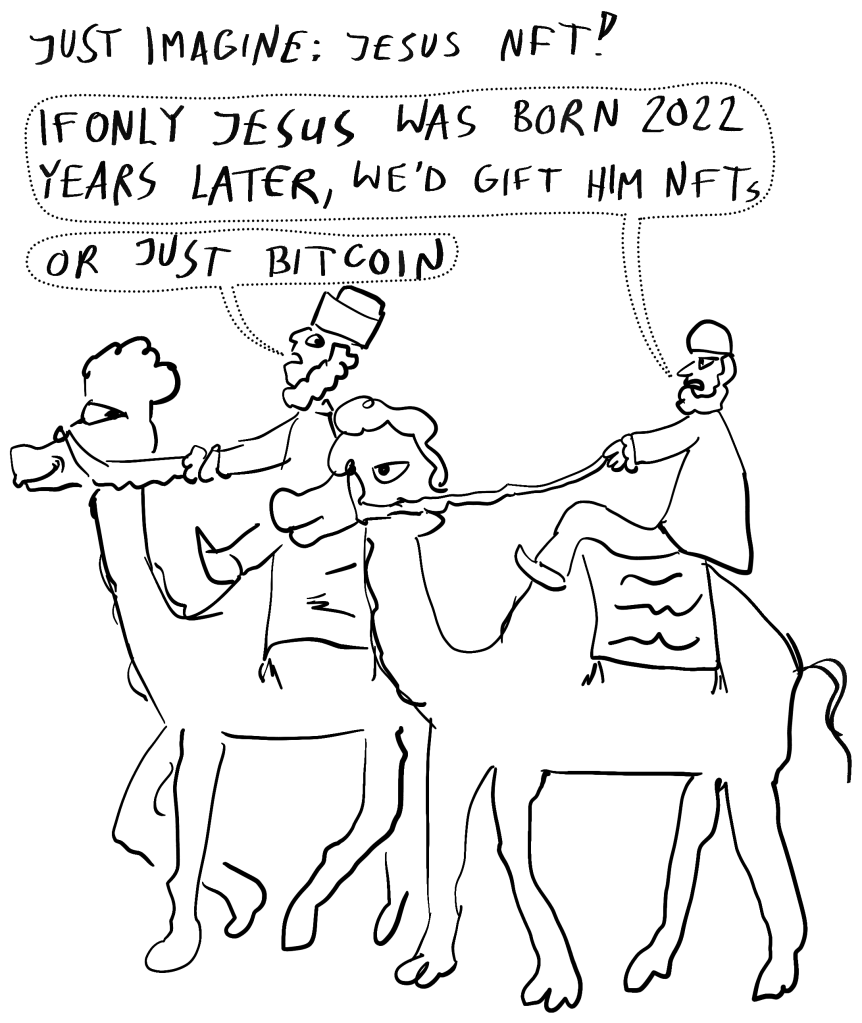 JUST IMAGINE: JESUS NFT!
IF ONLY JESUS WAS BORN 2022
YEARS LATER, WE'D GIFT HIM NFTs
OR JUST BITCOIN